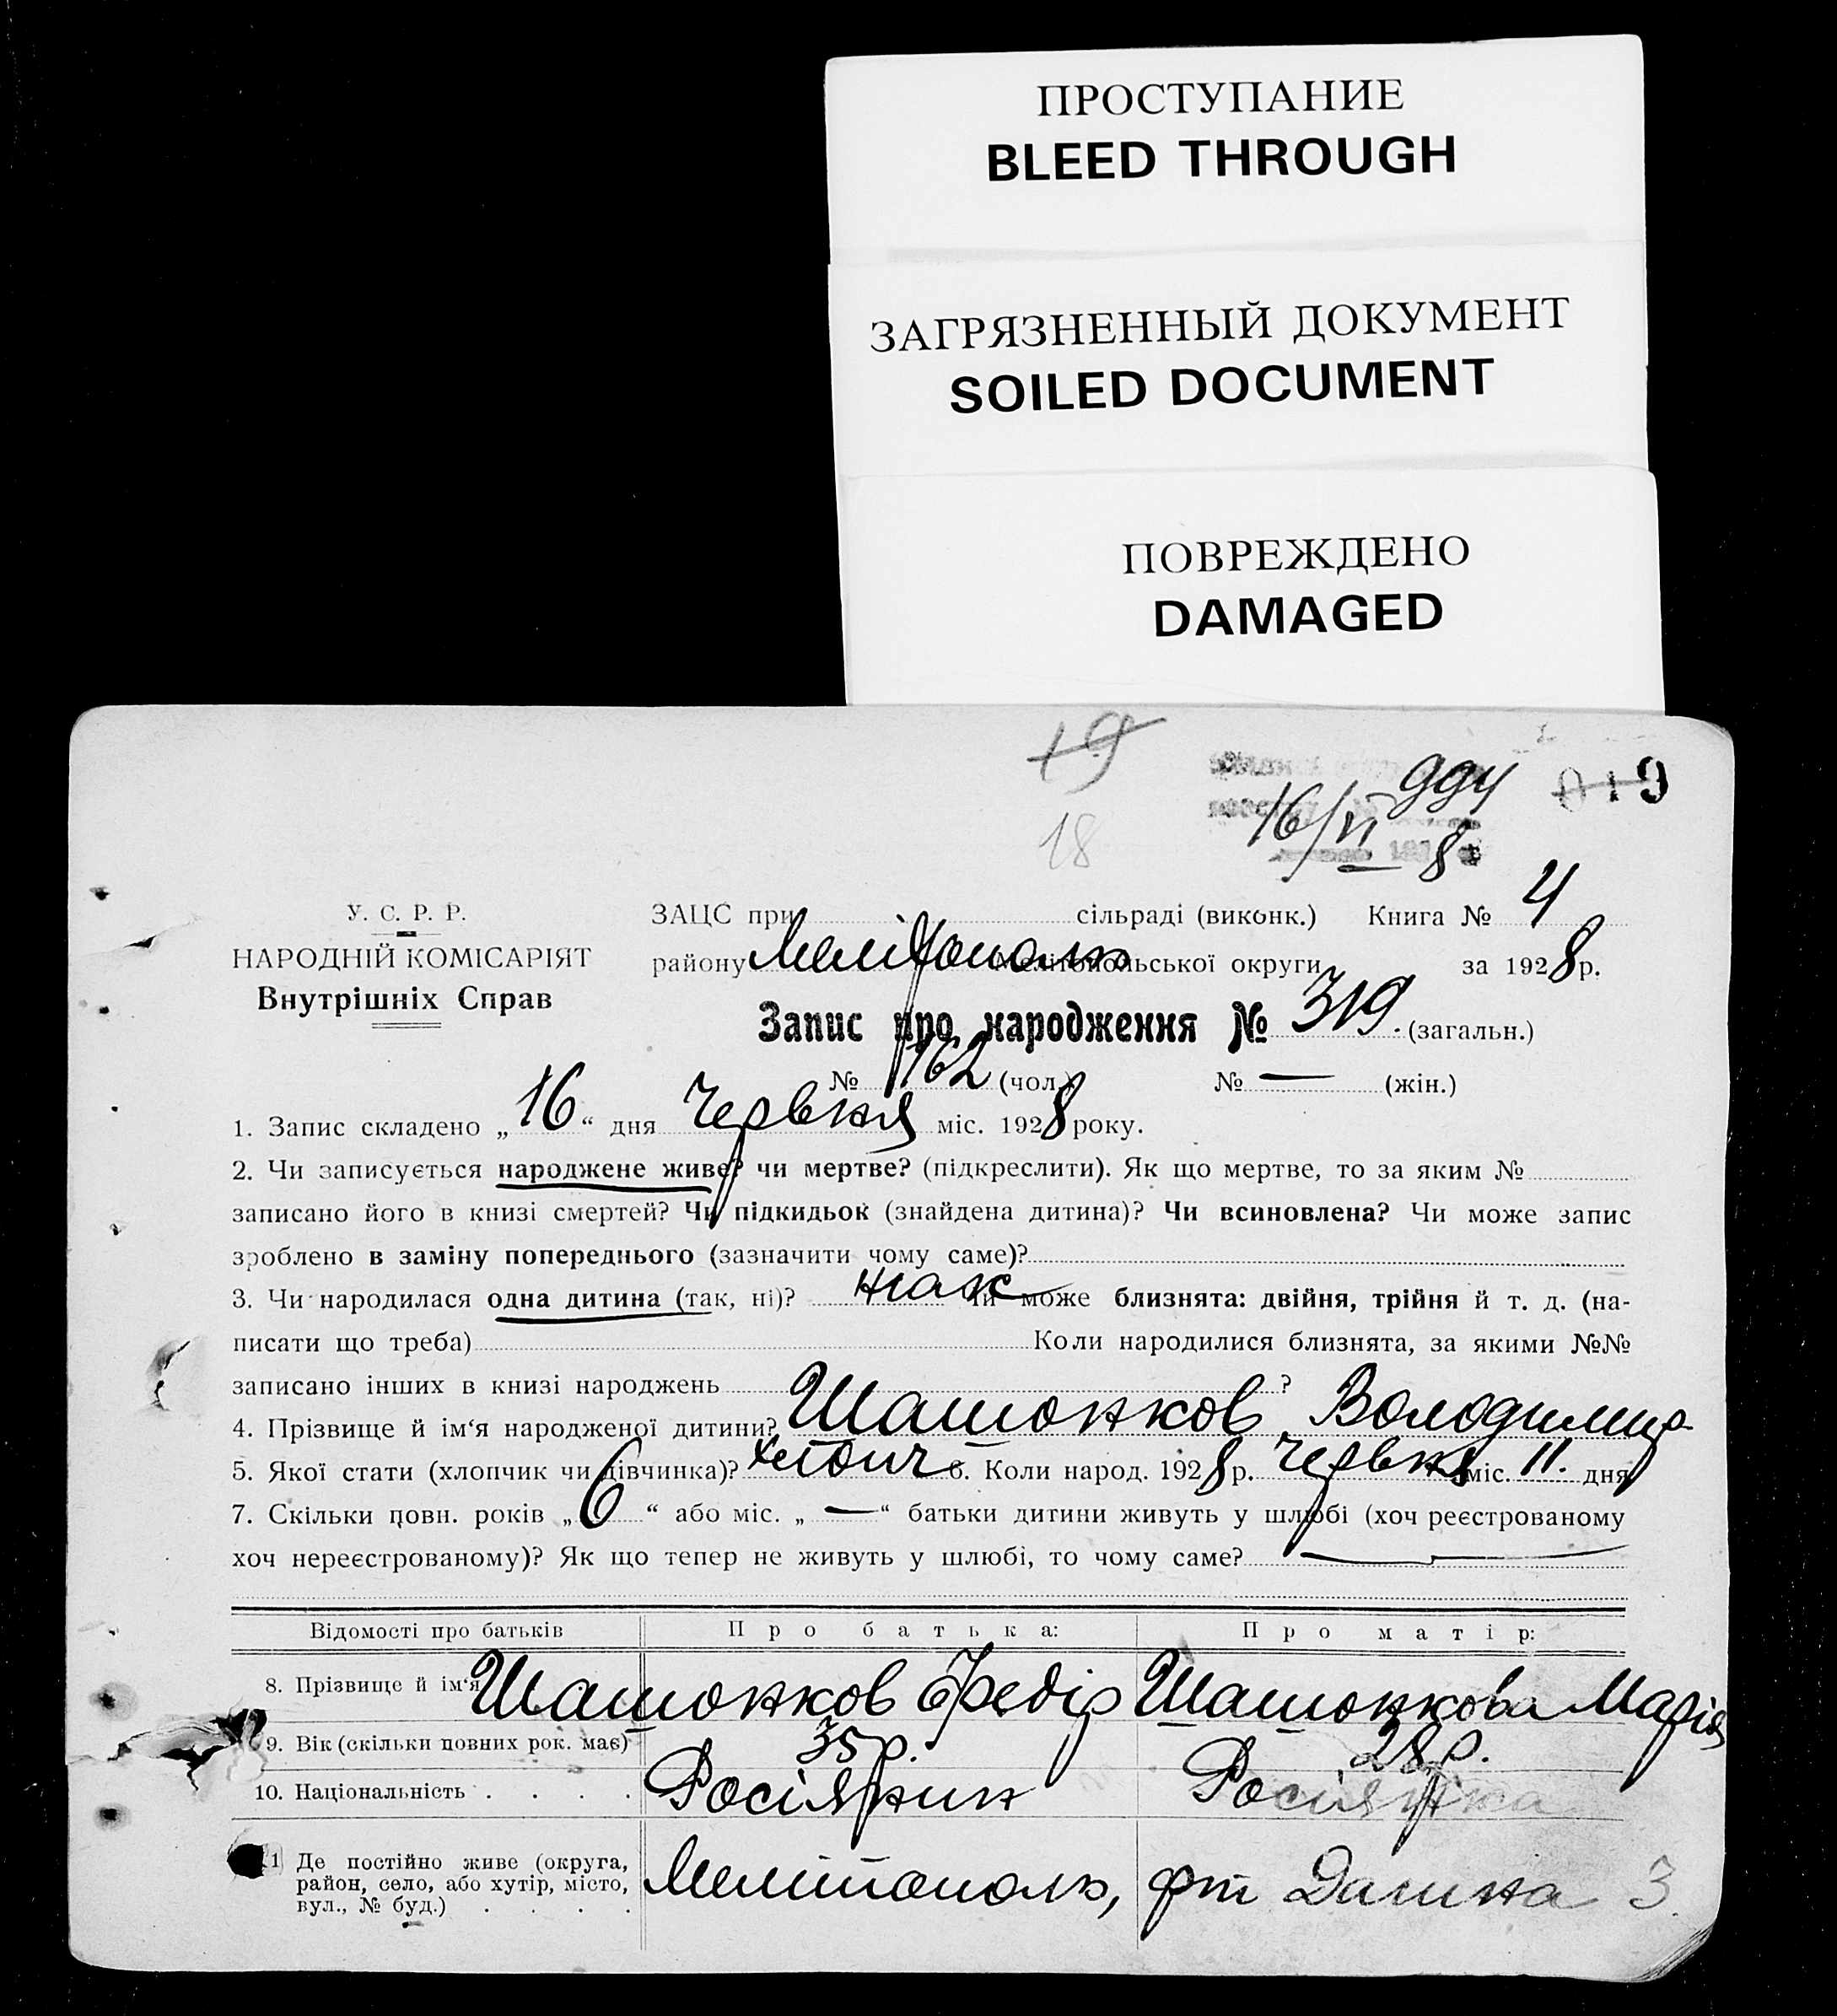 ПРОСТУПАНИЕ
BLEED THROUGH
ЗАГРЯЗНЕННЫЙ ДОКУМЕНТ
SOILED DOCUMENT
ПОВРЕЖДЕНО
DAMAGED
19
019
16/VI 8
18
У. С. Р. Р.
НАРОДНІЙ КОМІСАРІЯТ
Внутрішніх Справ
ЗАЦС при сільраді (виконк.) Книга № 4
району Мелітополь Мелітопольської округи за 1928 р.
Запис про народження № 319. (загальн.)
№ 162 (чол.) № — (жін.)
1. Запис складено „16“ дня Червня міс. 1928 року.
2. Чи записується народжене живе? чи мертве? (підкреслити). Як що мертве, то за яким №
записано його в книзі смертей? Чи підкидьок (знайдена дитина)? Чи всиновлена? Чи може запис
зроблено в заміну попереднього (зазначити чому саме)?
3. Чи народилася одна дитина (так, ні)? так Чи може близнята: двійня, трійня й т. д. (на-
писати що треба) Коли народилися близнята, за якими №№
записано інших в книзі народжень ?
4. Прізвище й ім‘я народженої дитини? Шатонков Володимир
5. Якої стати (хлопчик чи дівчинка)? хлопч 6. Коли народ. 1928 р. Червня міс. 11. дня
7. Скільки повн. років „6“ або міс. „—“ батьки дитини живуть у шлюбі (хоч реєстрованому
хоч нереєстрованому)? Як що тепер не живуть у шлюбі, то чому саме? —
Відомості про батьків Про батька: Про матір:
8. Прізвище й ім‘я Шатонков Федір Шатонкова Марія
9. Вік (скільки повних рок. має) 35 р. 28 р.
10. Національність . . . . Росіянин Росіянка
11 Де постійно живе (округа,
район, село, або хутір, місто,
вул., № буд.) . . . . Мелітополь, 3